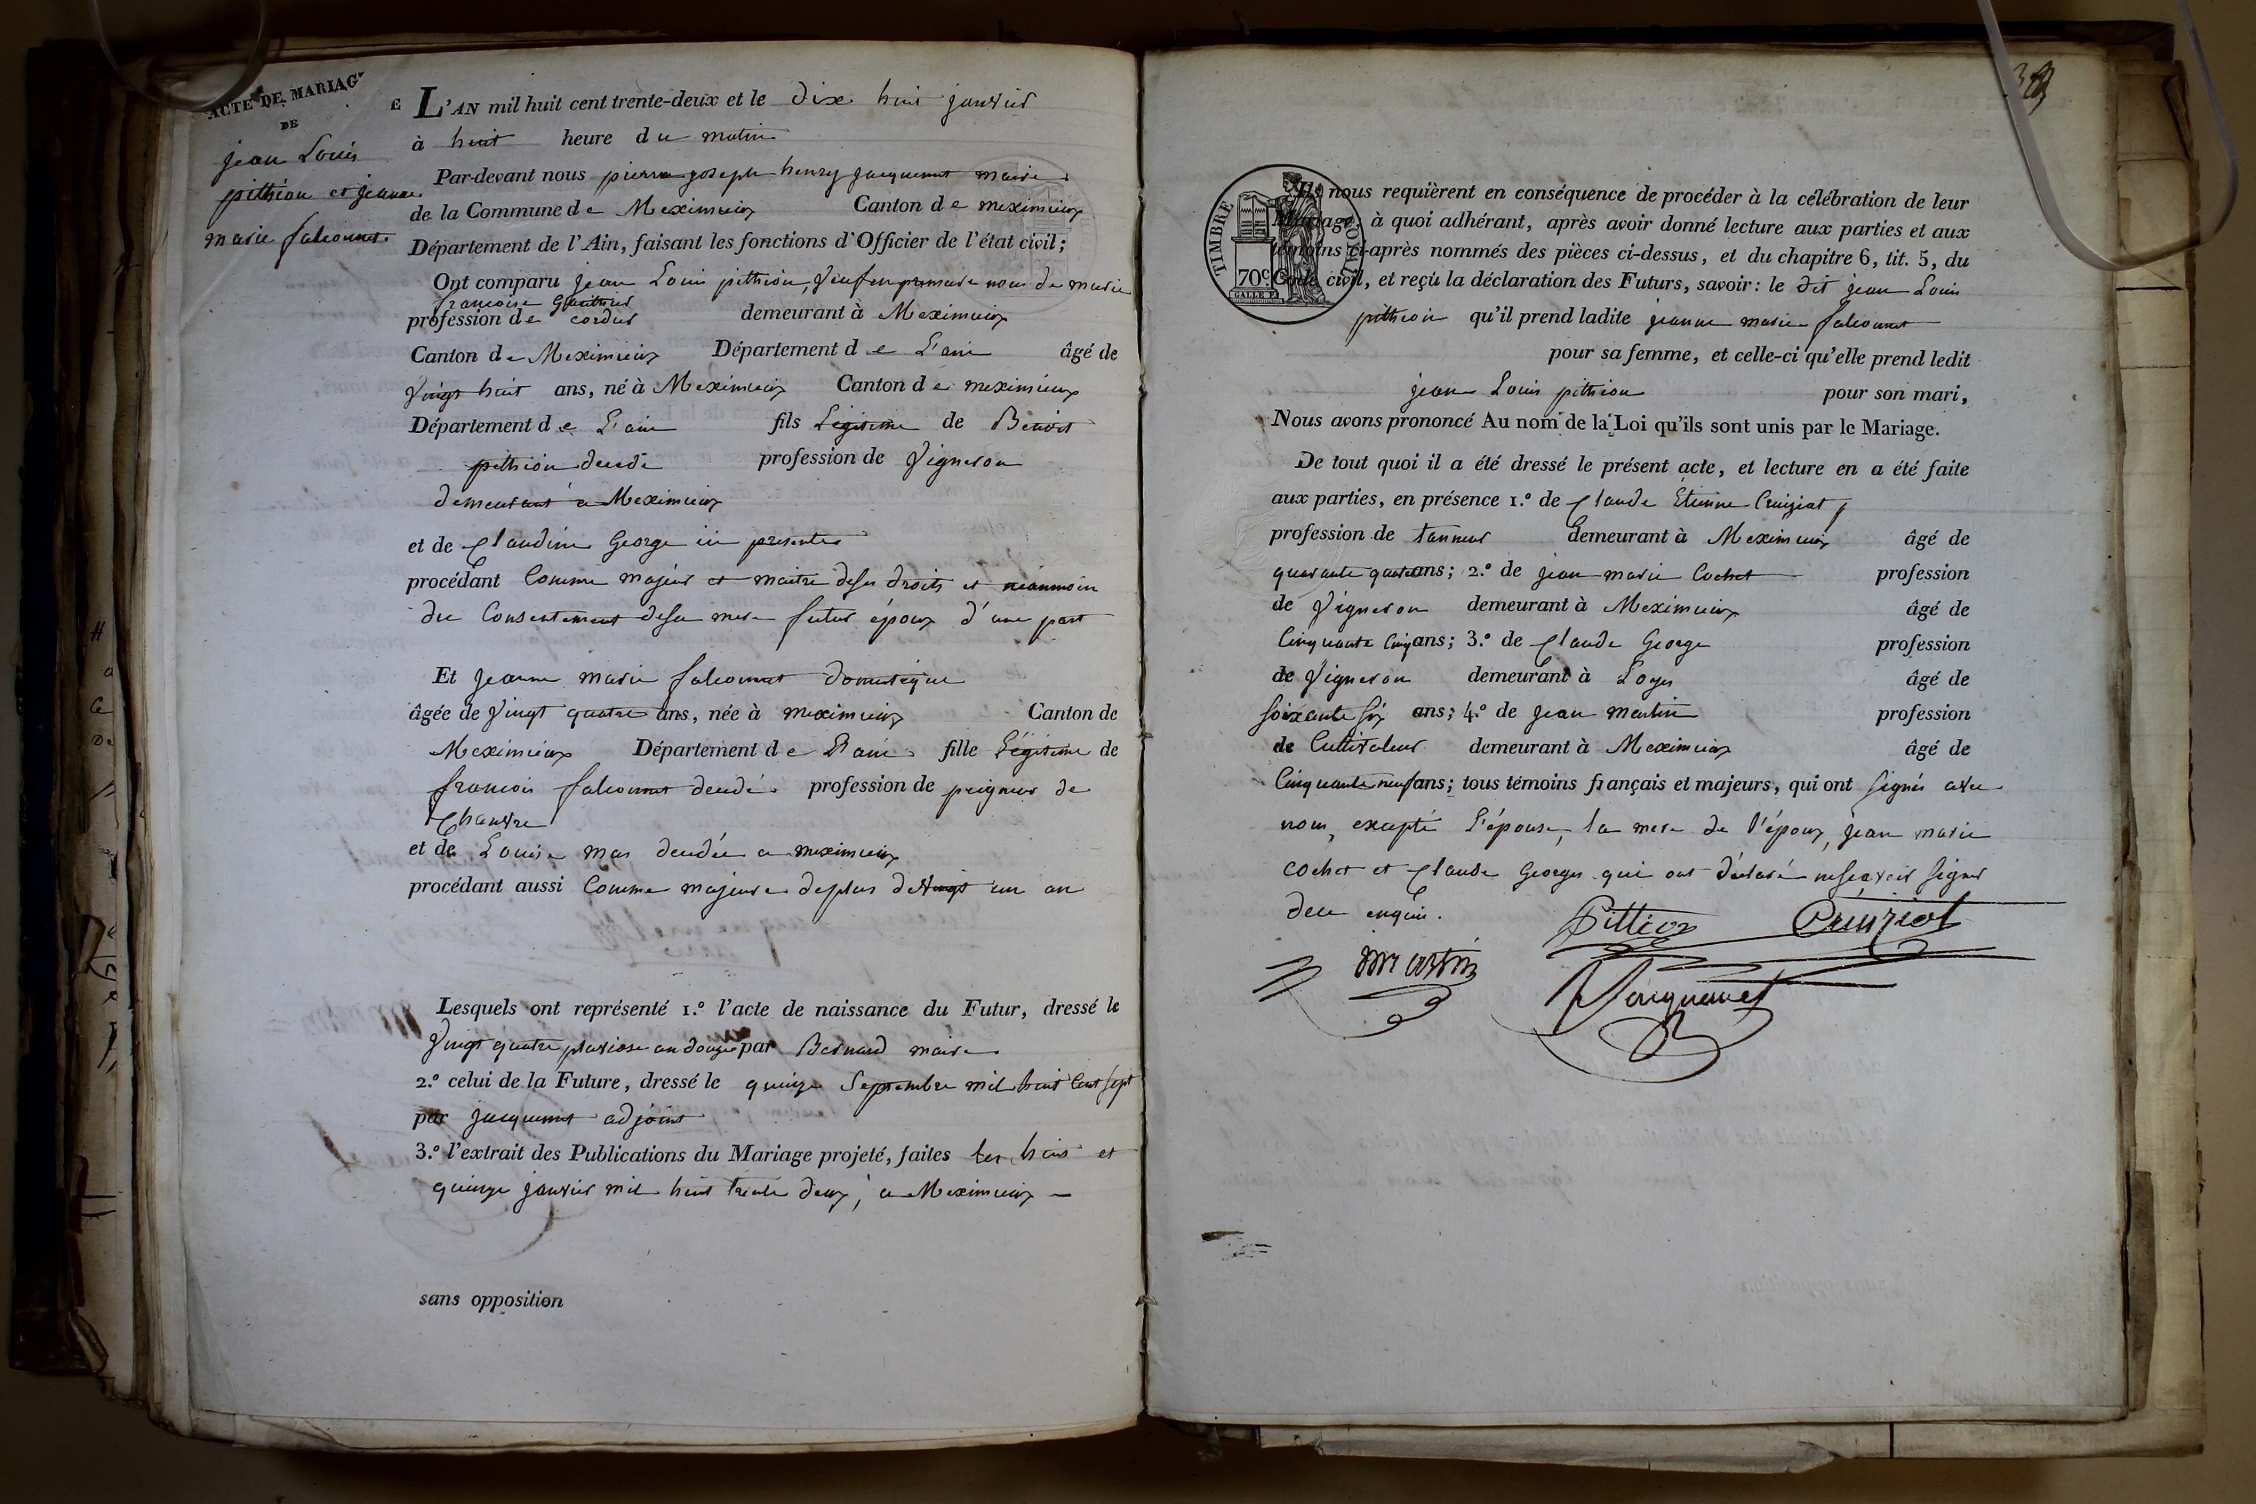 ACTE DE MARIAGE
DE
jean Louis
pithion et jeanne
marie falconnet
L'AN mil huit cent trente-deux et le dix huit janvier
à huit heure du matin
Par-devant nous pierre joseph henry jacquemet maire
de la Commune de Meximieux Canton de meximieux
Département de l'Ain, faisant les fonctions d'Officier de l'état civil;
Ont comparu jean Louis pithion, veuf en premiere noces de marie
francoise Gauthier
profession de cordier demeurant à Meximieux
Canton de Meximieux Département de L'ain âgé de
vingt huit ans, né à Meximieux Canton de meximieux
Département de L'ain fils Légitime de Benoit
pithion decedé profession de vigneron
demeurant a Meximieux
et de Claudine George ici presente
procédant Comme majeur et maitre de ses droits et néanmoin
du Consentement de sa mere futur époux d'une part
Et jeanne marie falconnet domestique
âgée de vingt quatre ans, née à meximieux Canton de
Meximieux Département de L'ain fille Légitime de
francois falconnet decedé profession de peigneur de
Chanvre
et de Louise mas decedée a meximieux
procédant aussi Comme majeure de plus de vingt un an
Lesquels ont représenté 1.º l'acte de naissance du Futur, dressé le
vingt quatre pluviose an douze par Bernard maire
2.º celui de la Future, dressé le quinze Septembre mil huit Cent sept
par jacquemet adjoint
3.º l'extrait des Publications du Mariage projeté, faites les huit et
quinze janvier mil huit trente deux, a Meximieux
sans opposition
TIMBRE ROYAL
70c.
Ils nous requièrent en conséquence de procéder à la célébration de leur
Mariage; à quoi adhérant, après avoir donné lecture aux parties et aux
témoins ci-après nommés des pièces ci-dessus, et du chapitre 6, tit. 5, du
Code civil, et reçu la déclaration des Futurs, savoir: le dit jean Louis
pithion qu'il prend ladite jeanne marie falconnet
pour sa femme, et celle-ci qu'elle prend ledit
jean Louis pithion pour son mari,
Nous avons prononcé Au nom de la Loi qu'ils sont unis par le Mariage.
De tout quoi il a été dressé le présent acte, et lecture en a été faite
aux parties, en présence 1.º de Claude Etienne Cruiziat
profession de tanneur demeurant à Meximieux âgé de
quarante quatre ans; 2.º de jean marie Cochet profession
de vigneron demeurant à Meximieux âgé de
Cinquante Cinq ans; 3.º de Claude George profession
de vigneron demeurant à Loyes âgé de
soixante six ans; 4.º de jean martin profession
de Cultivateur demeurant à Meximieux âgé de
Cinquante neuf ans; tous témoins français et majeurs, qui ont signés avec
nous, excepté L'épouse, la mere de l'époux, jean marie
cochet et Claude Georges qui ont déclaré ne scavoir signer
de ce enquis.
Pittion Cruiziat
martin
Jacquemet